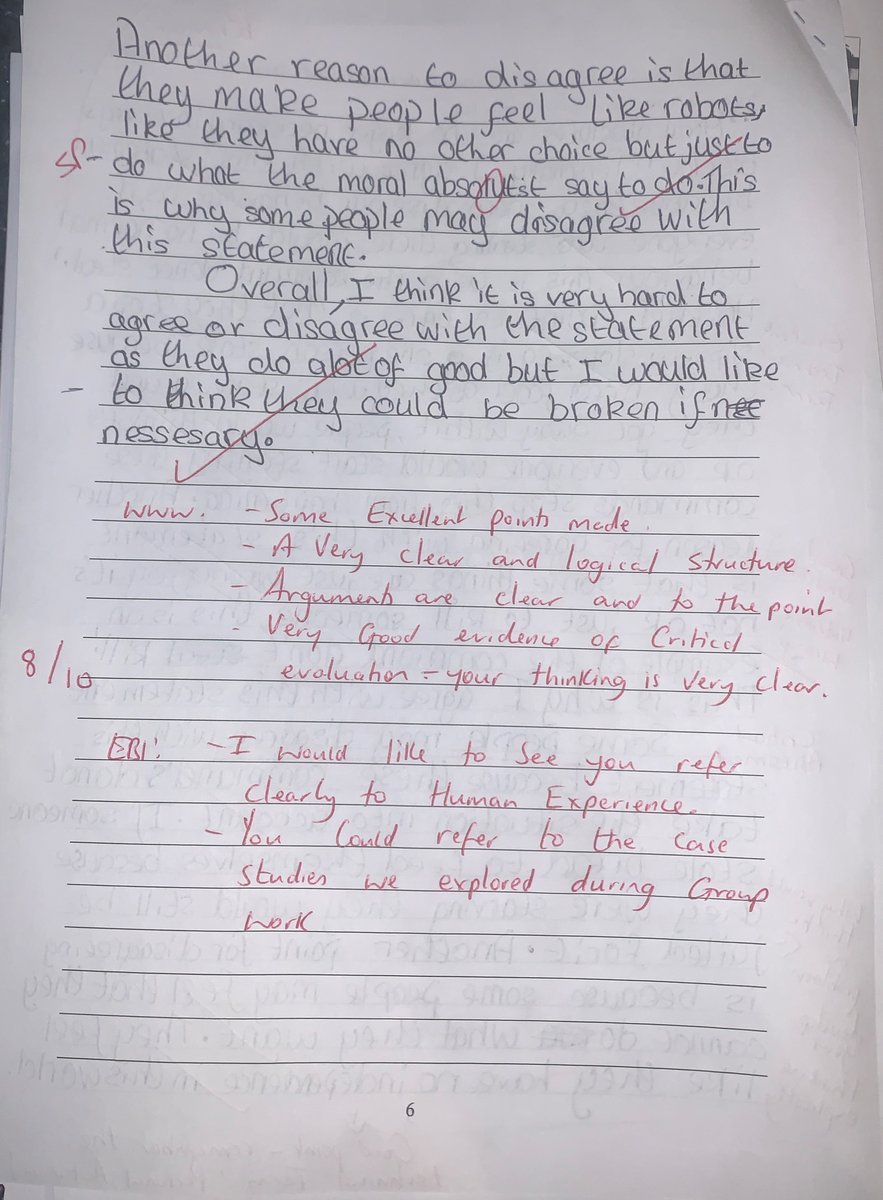 Another reason to disagree is that
they make people feel like robots,
like they have no other choice but just to
do what the moral absolutist say to do. This
is why some people may disagree with
this statement.
Overall, I think it is very hard to
agree or disagree with the statement
as they do alot of good but I would like
to think they could be broken if nec
nessesary.
WWW. - Some Excellent points made.
- A Very clear and logical structure.
- Arguments are clear and to the point
- Very Good evidence of Critical
evaluation - your thinking is very clear.
8/10
EBI: - I would like to see you refer
clearly to Human Experience.
- You Could refer to the case
studies we explored during Group
work
6